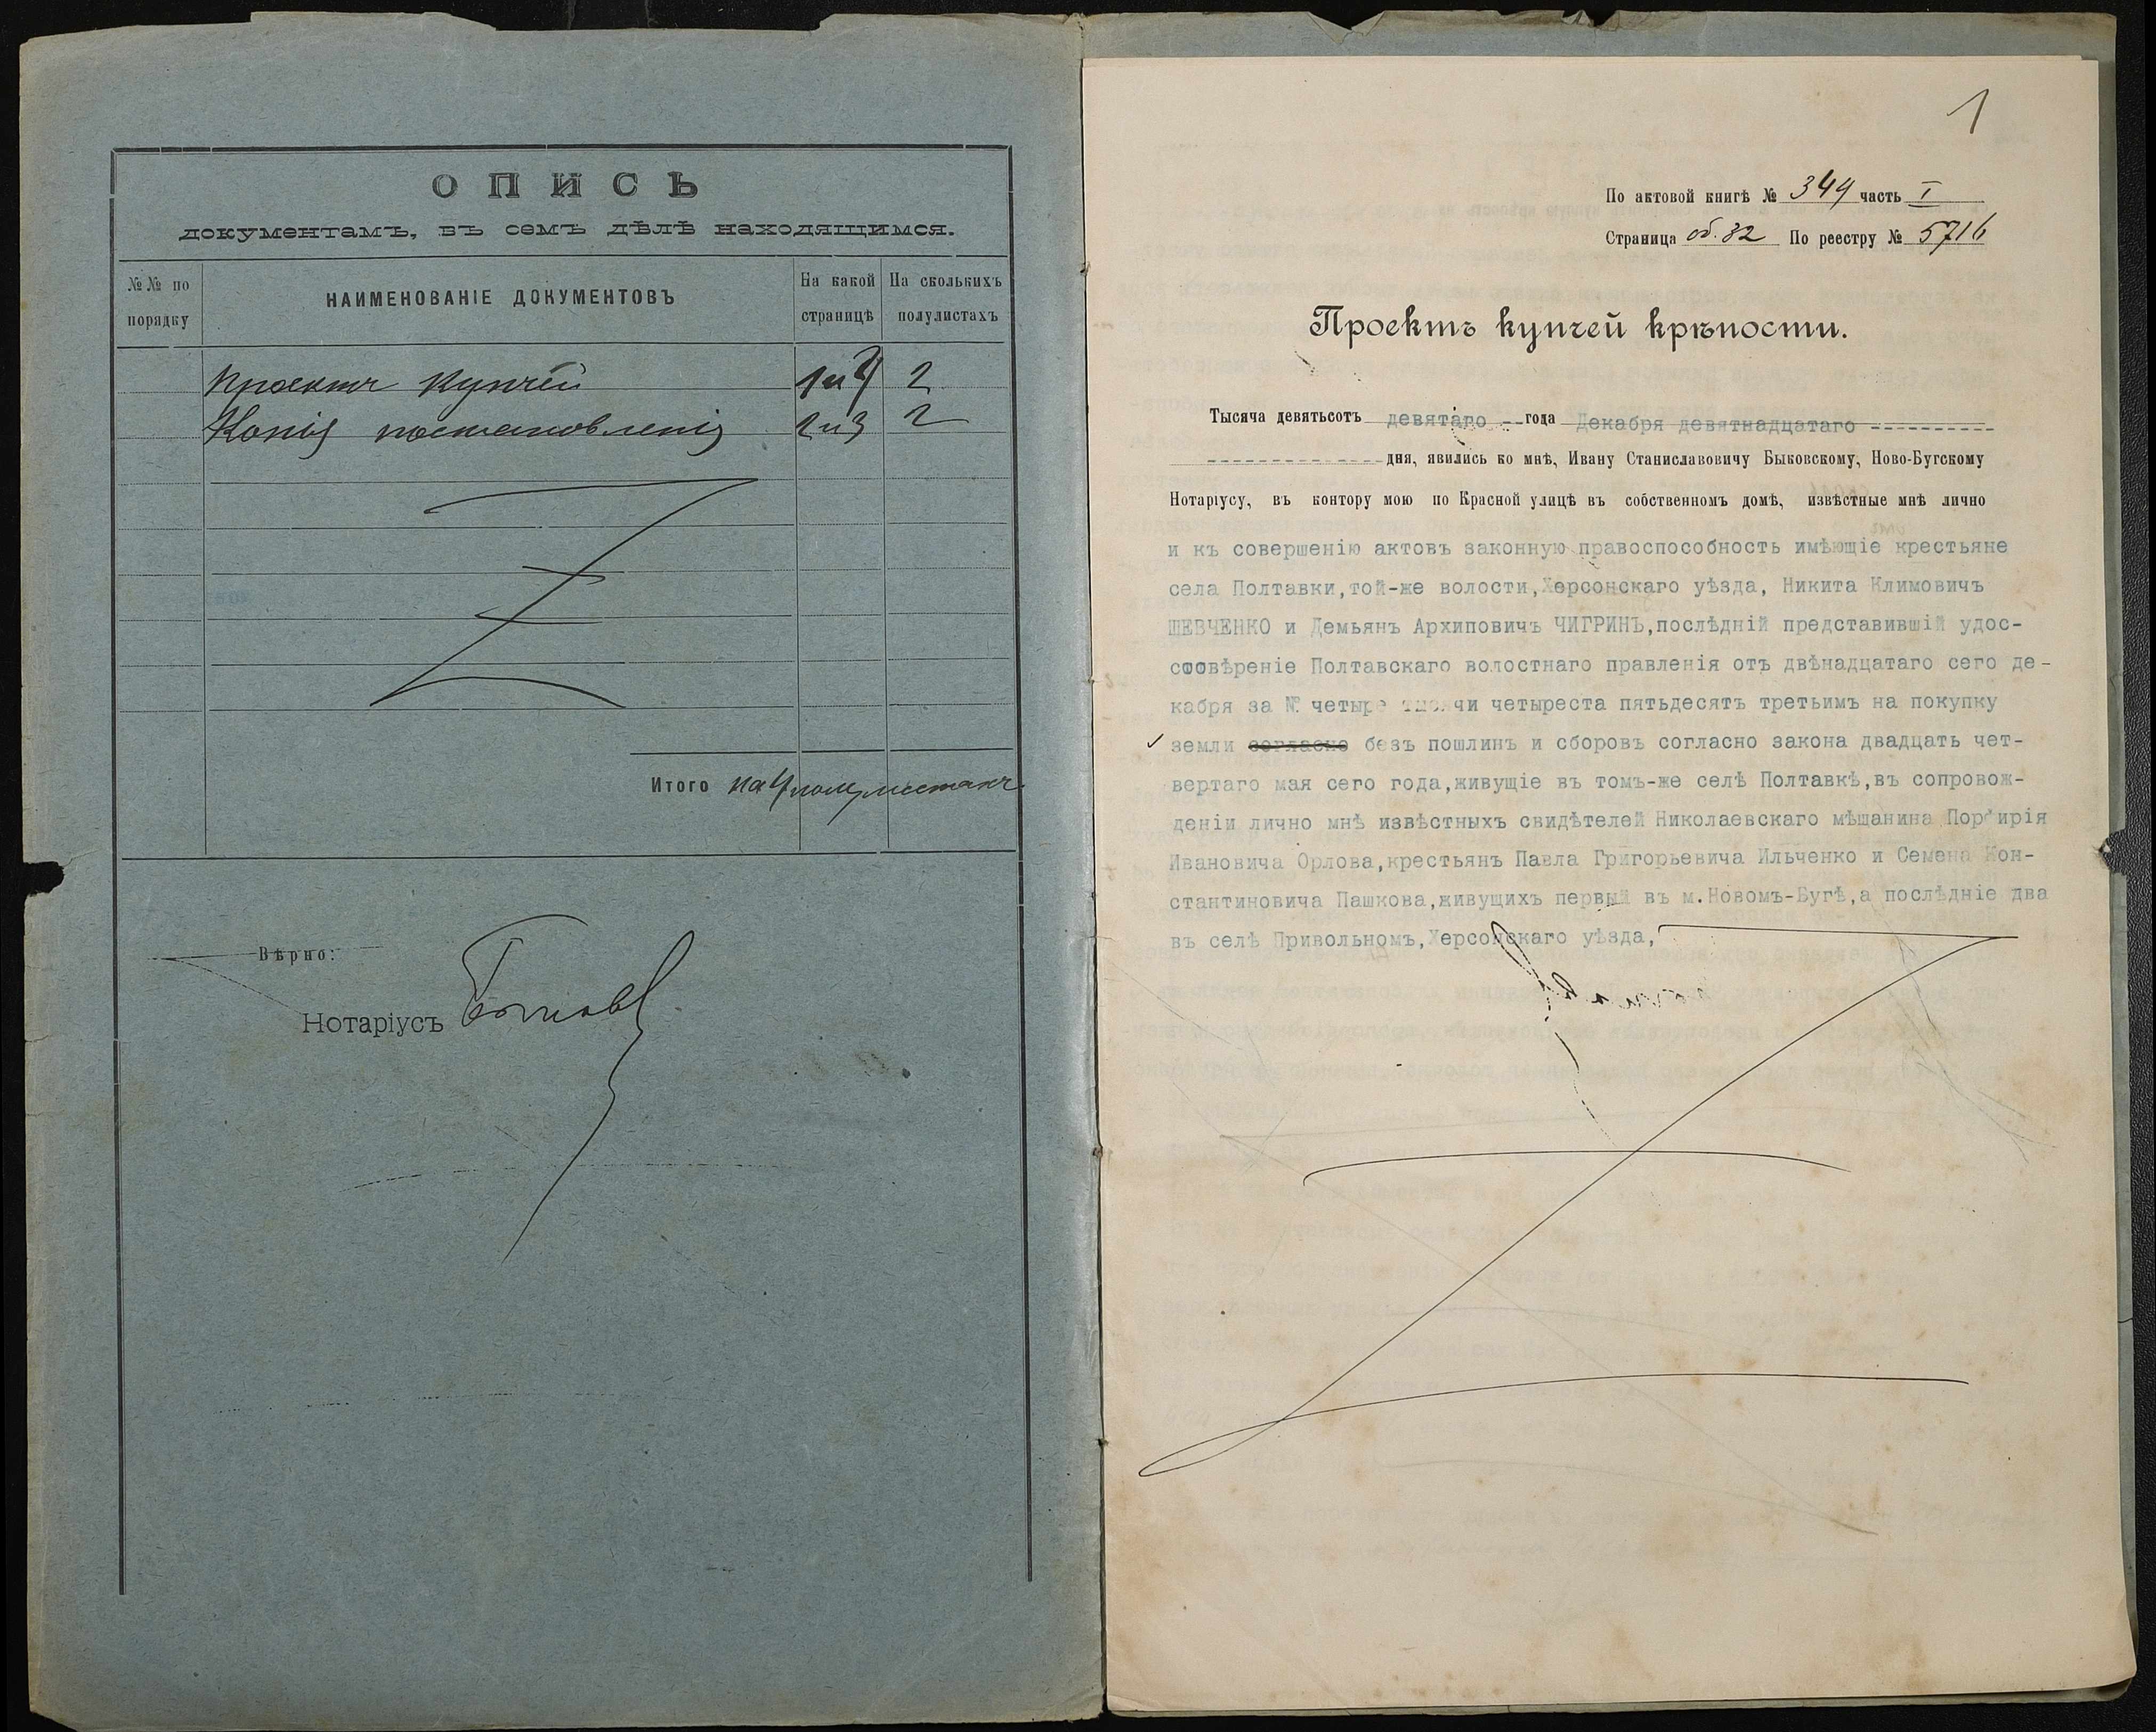 ОПИСЬ
документамъ, въ семъ дѣлѣ находящимся.
№№ по порядку
НАИМЕНОВАНІЕ ДОКУМЕНТОВЪ
На какой страницѣ
На сколькихъ полулистахъ
Проектъ купчей 1 и 4 2
Копія постановленія 2 и 3 2
Итого на 4 полулистахъ
Вѣрно:
Нотаріусъ
1
По актовой книгѣ № 349 часть I
Страница об. 32 По реестру № 5716
Проектъ купчей крѣпости.
Тысяча девятьсотъ девятаго -- года Декабря девятнадцатаго ----------
-------------- дня, явились ко мнѣ, Ивану Станиславовичу Быковскому, Ново-Бугскому
Нотаріусу, въ контору мою по Красной улицѣ въ собственномъ домѣ, извѣстные мнѣ лично
и къ совершенію актовъ законную правоспособность имѣющіе крестьяне
села Полтавки,той-же волости,Херсонскаго уѣзда, Никита Климовичъ
ШЕВЧЕНКО и Демьянъ Архиповичъ ЧИГРИНЪ,послѣдній представившій удос-
товѣреніе Полтавскаго волостнаго правленія отъ двѣнадцатаго сего де-
кабря за № четыре тысячи четыреста пятьдесятъ третьимъ на покупку
земли согласно безъ пошлинъ и сборовъ согласно закона двадцать чет-
вертаго мая сего года,живущіе въ томъ-же селѣ Полтавкѣ,въ сопровож-
деніи лично мнѣ извѣстныхъ свидѣтелей Николаевскаго мѣщанина Порфирія
Ивановича Орлова,крестьянъ Павла Григорьевича Ильченко и Семена Кон-
стантиновича Пашкова,живущихъ первый въ м.Новомъ-Бугѣ,а послѣдніе два
въ селѣ Привольномъ,Херсонскаго уѣзда,